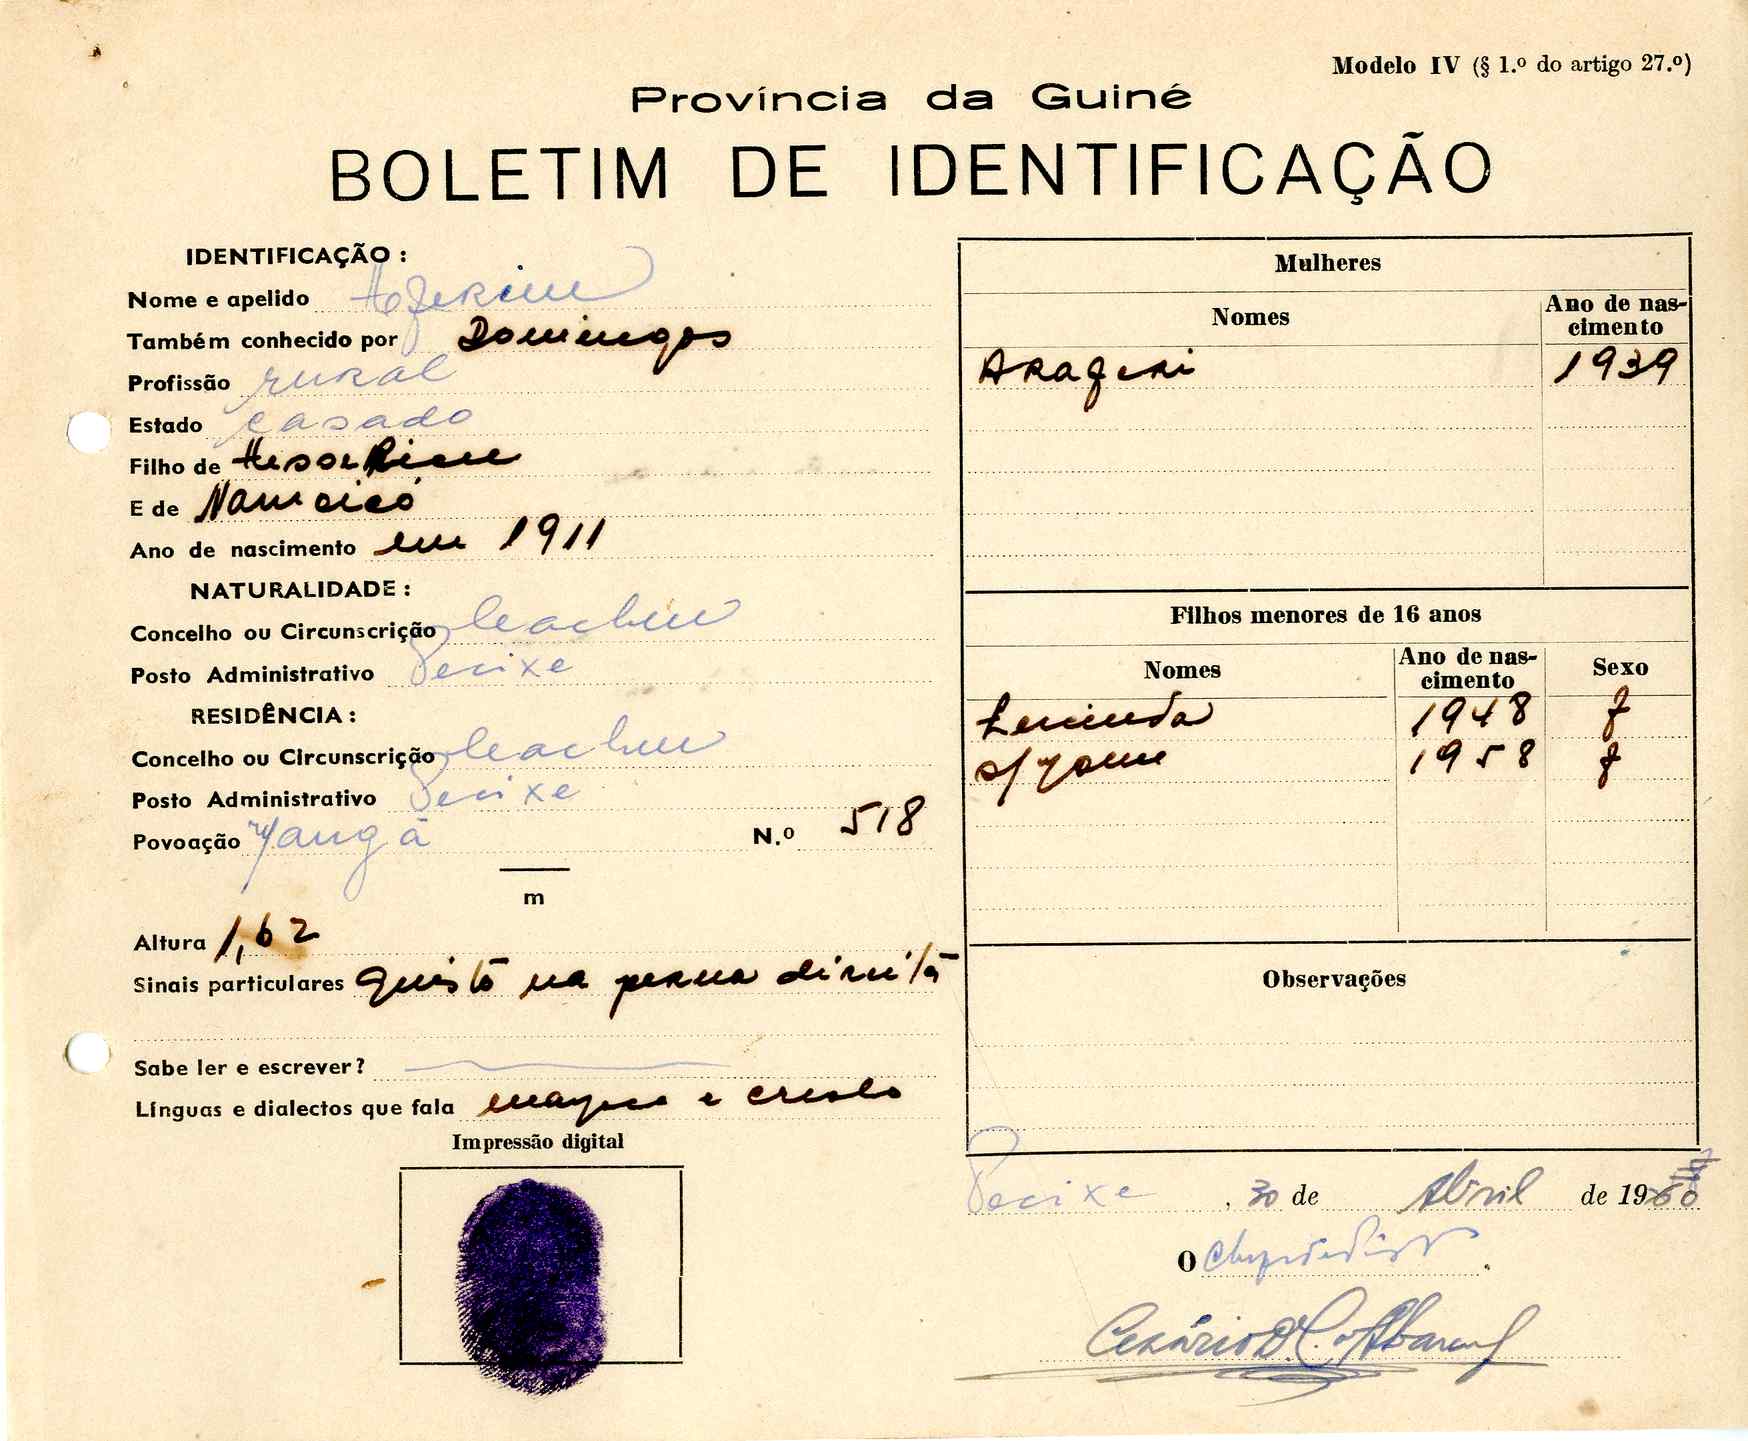 Modelo IV (§ 1.º do artigo 27.º)
Província da Guiné
BOLETIM DE IDENTIFICAÇÃO
IDENTIFICAÇÃO :
Nome e apelido
Também conhecido por Domingos
Profissão rural
Estado casado
Filho de
E de
Ano de nascimento em 1911
NATURALIDADE :
Concelho ou Circunscrição Cacheu
Posto Administrativo Pecixe
RESIDÊNCIA :
Concelho ou Circunscrição Cacheu
Posto Administrativo Pecixe
Povoação N.º 518
m
Altura 1,62
Sinais particulares quisto na perna direita
Sabe ler e escrever?
Línguas e dialectos que fala e creolo
Impressão digital
Mulheres
Nomes Ano de nas-
cimento
Arageri 1939
Filhos menores de 16 anos
Nomes Ano de nas-
cimento Sexo
1948 f
s/nome 1958 f
Observações
Pecixe, 30 de Abril de 1960
O
Cesário D. C.